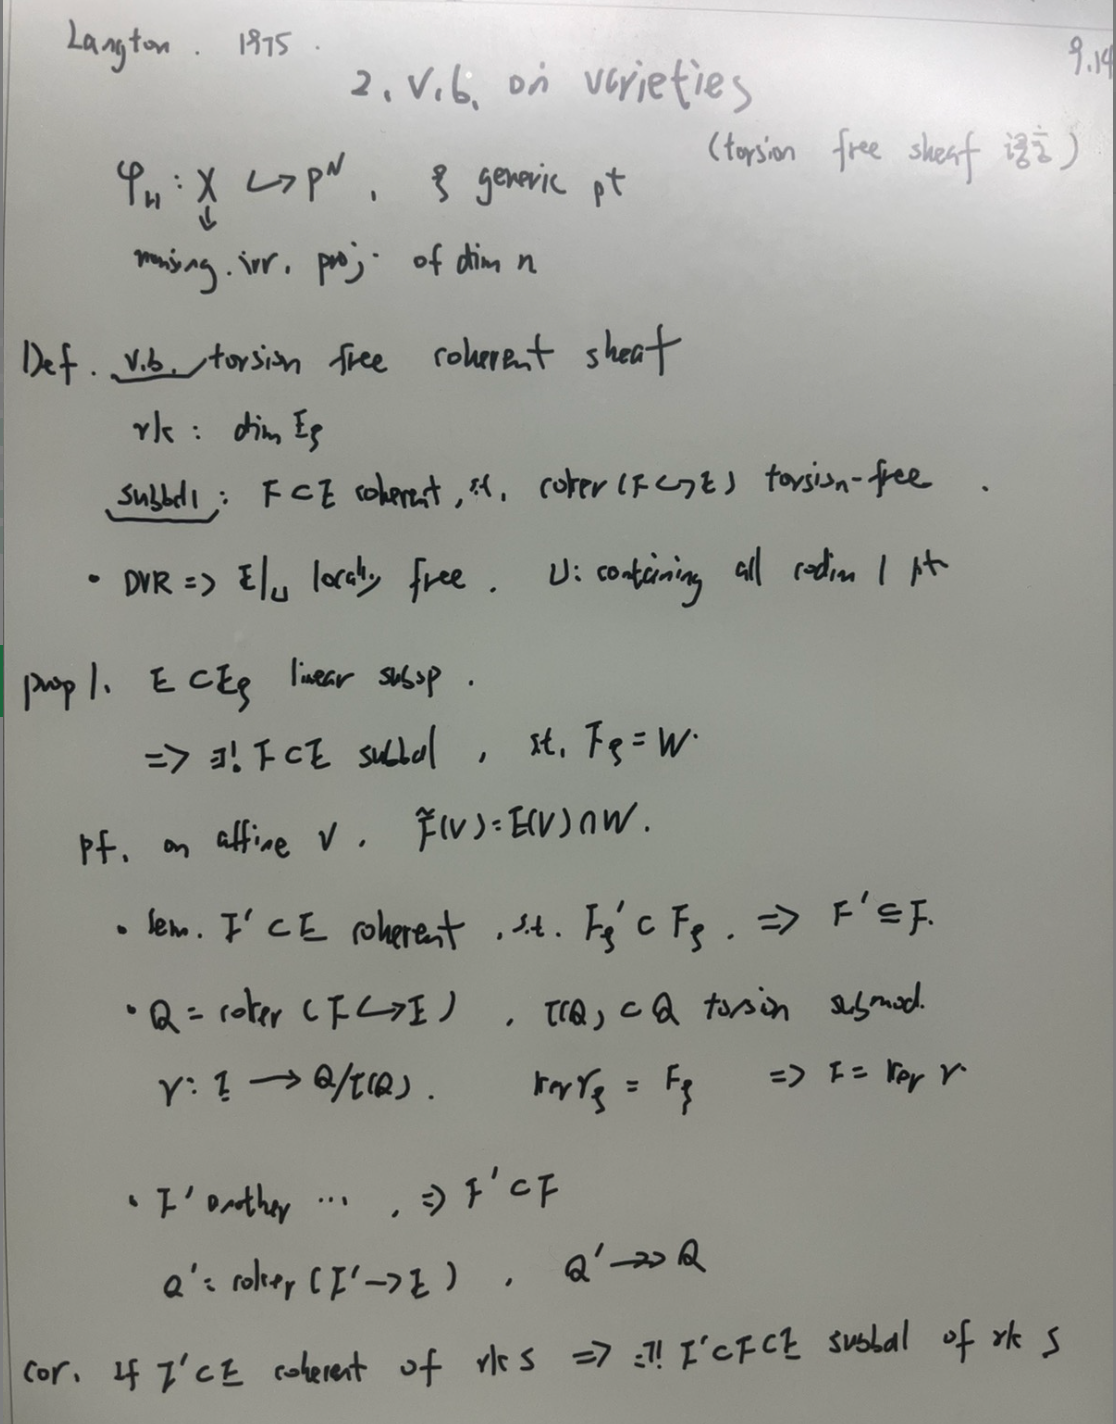 Langton. 1975.
9.14
2. v.b. on varieties
(torsion free sheaf)
φ_H : X ↪ P^N, ξ generic pt
↓
nonsing. irr. proj. of dim n
Def. v.b. torsion free coherent sheaf
rk : dim E_ξ
subbdl : F ⊂ E coherent, s.t. coker (F ↪ E) torsion-free.
• DVR => E|_U locally free. U: containing all codim 1 pt
prop 1. E ⊂ E_ξ linear subsp.
=> ∃! F ⊂ E subbdl, st. F_ξ = W.
pf. on affine V. F̃(V) = E(V) ∩ W.
• lem. F' ⊂ E coherent, s.t. F_ξ' ⊂ F_ξ. => F' ⊆ F.
• Q = coker (F ↪ E), T(Q) ⊂ Q torsion submod.
γ : E → Q/T(Q). ker γ_ξ = F_ξ => F = ker γ.
• F' another ..., => F' ⊂ F
Q' = coker (F' → E), Q' ↠ Q
cor. if F' ⊂ E coherent of rk s => ∃! F' ⊂ F ⊂ E subbdl of rk s